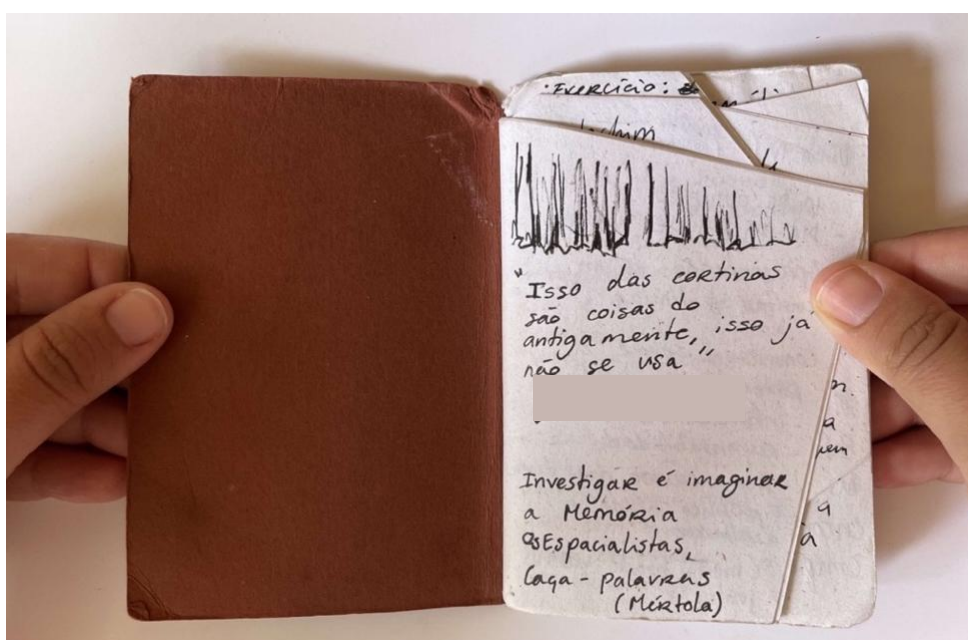 ·Exercício:
"Isso das cortinas
são coisas do
antigamente, isso já
não se usa"
Investigar é imaginar
a Memória
osEspacialistas,
Caça-palavras
(Mértola)